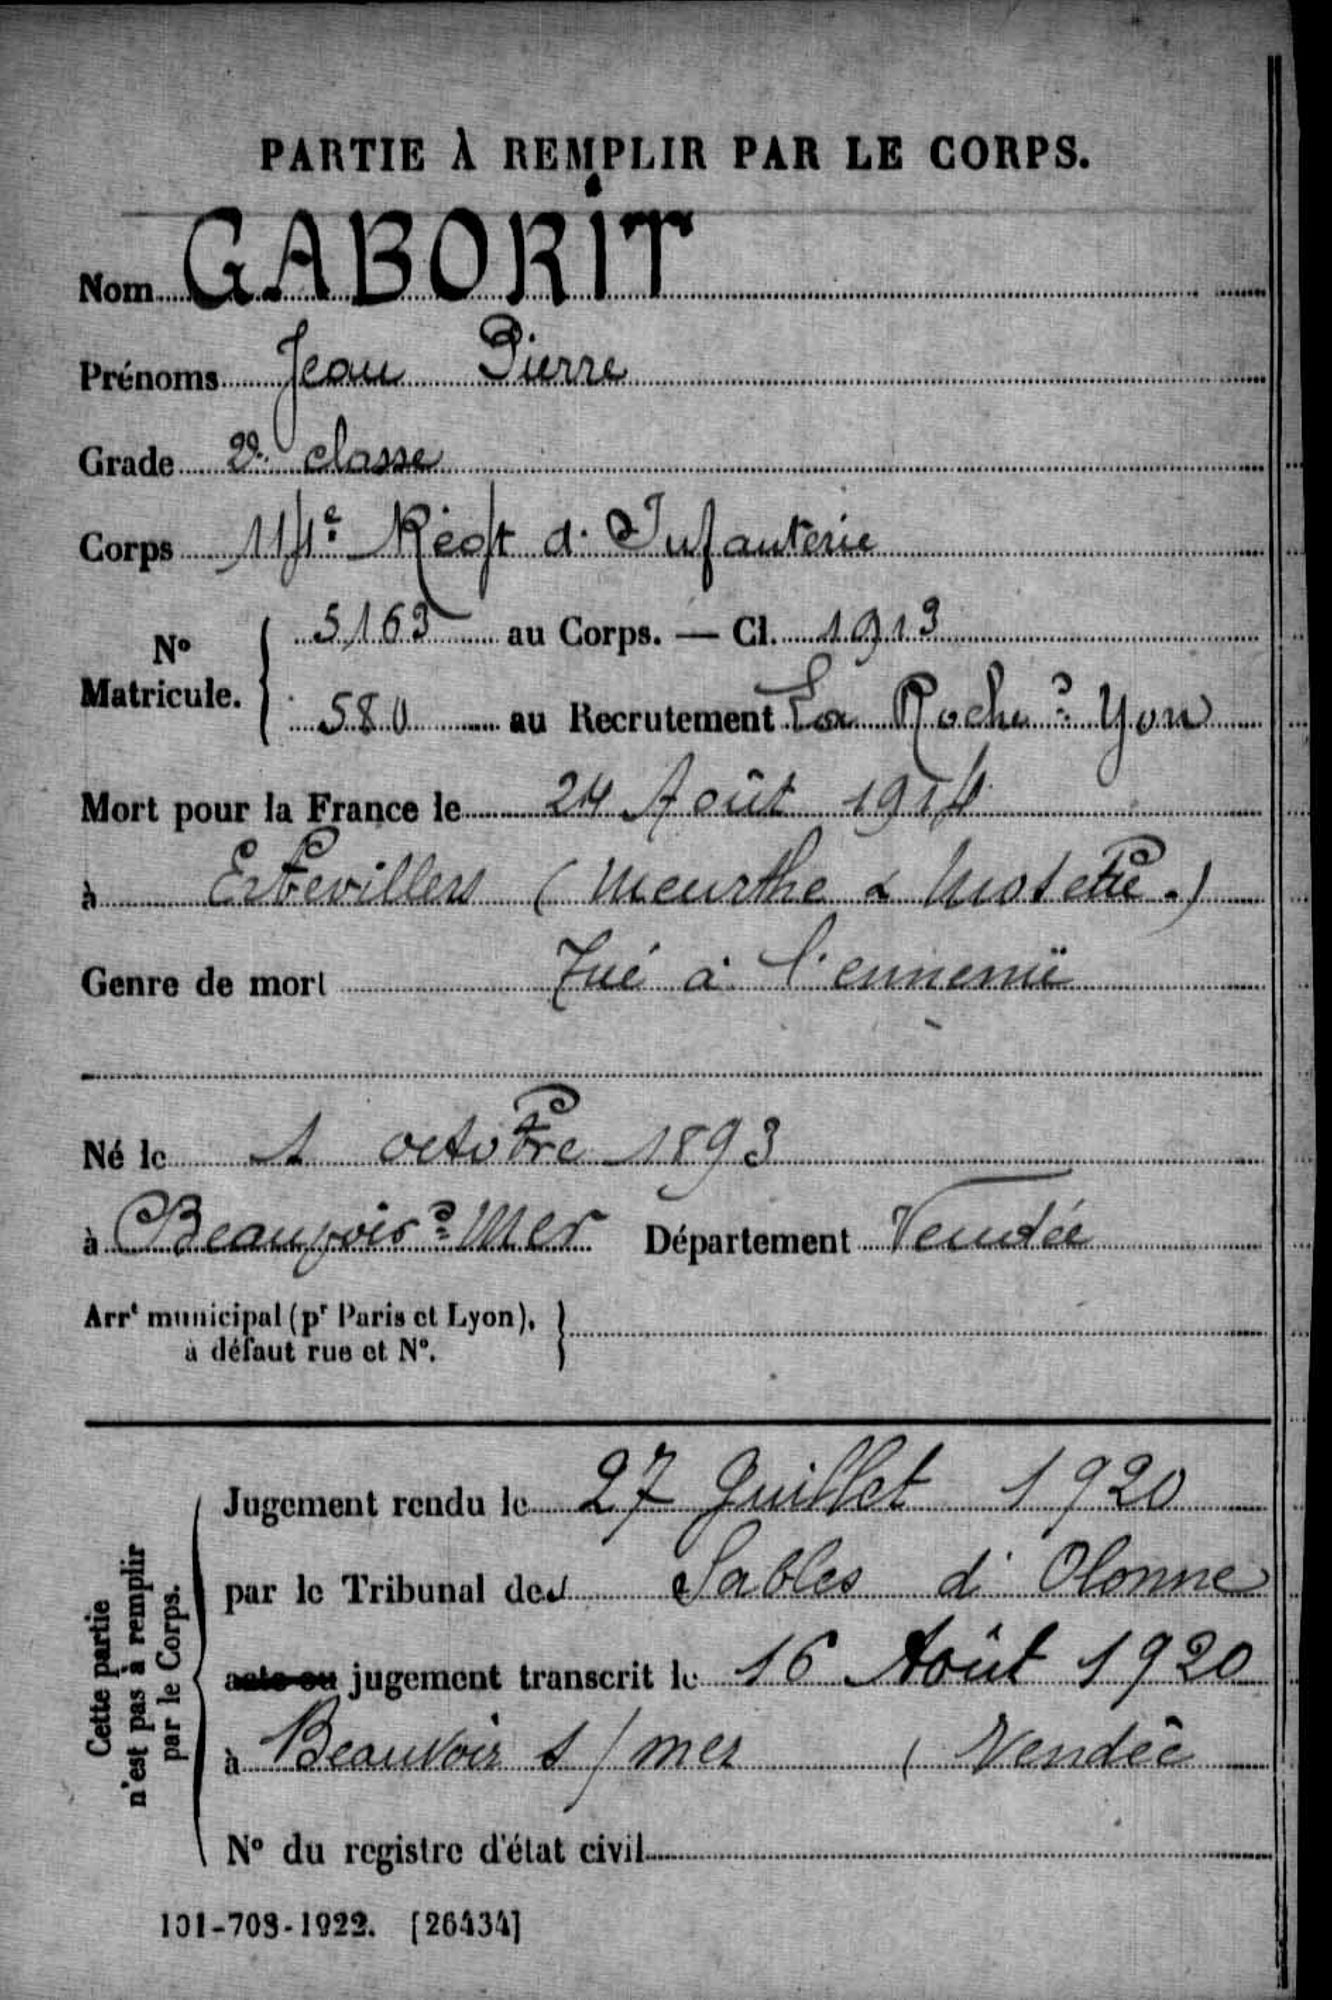 PARTIE À REMPLIR PAR LE CORPS.
Nom GABORIT
Prénoms Jean Pierre
Grade 2e classe
Corps 114e Régt d'Infanterie
No Matricule. 5163 au Corps. — Cl. 1913
580 au Recrutement La Roche s Yon
Mort pour la France le 24 Août 1914
à Erbevillers (Meurthe & Moselle.)
Genre de mort Tué à l'ennemi
Né le 1 octobre 1893
à Beauvoir s Mer Département Vendée
Arrt municipal (pr Paris et Lyon),
à défaut rue et No.
Cette partie
n'est pas à remplir
par le Corps.
Jugement rendu le 27 Juillet 1920
par le Tribunal des Sables d'Olonne
acte ou jugement transcrit le 16 Août 1920
à Beauvoir s/mer (Vendée
No du registre d'état civil
101-708-1922. [26434]